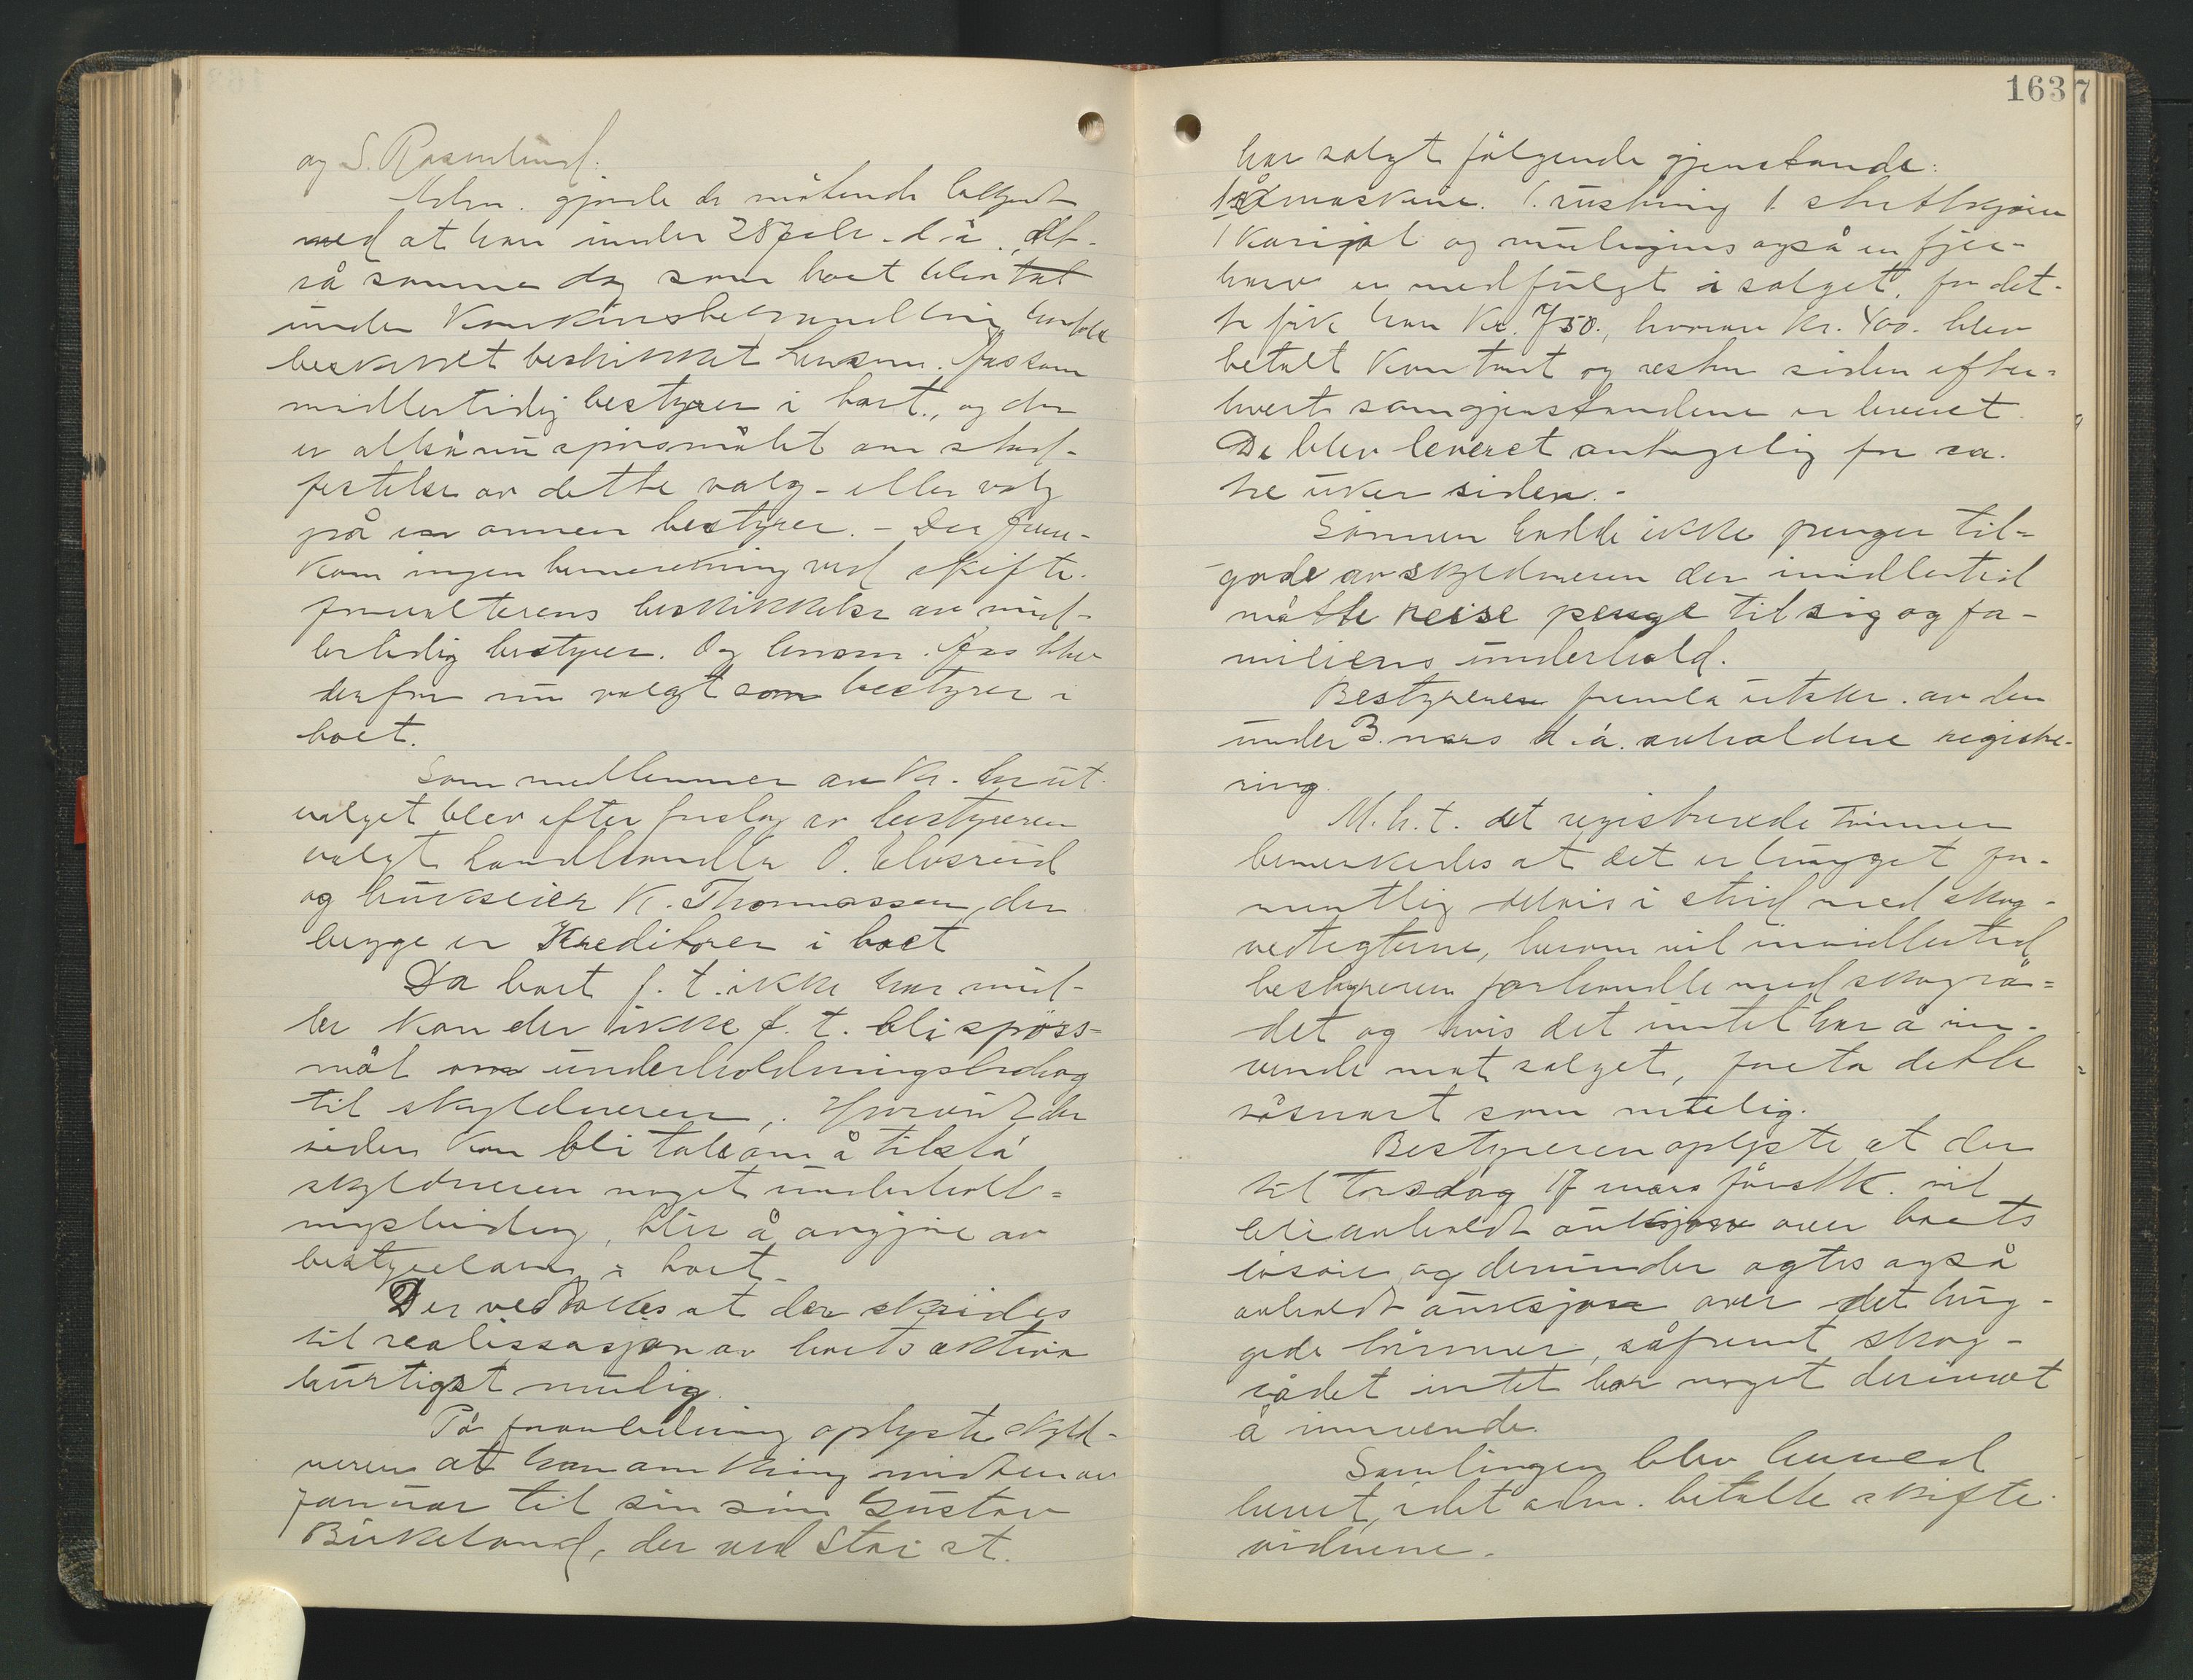 og S. Rosenlund.
Adm. gjorde de møtende bekjendt
med at han under 28 febr. d.å., alt-
så samme dag som boet blev tat
under konkursbehandling, hadde
beskikket lensm. Aas som
midlertidig bestyrer i boet, og der
er altså nu spørsmålet om stad-
festelse av dette valg - eller valg
på en annen bestyrer. - Der frem-
kom ingen bemerkning ved skifte-
forvalterens beskikkelse av mid-
lertidig bestyrer. Og lensm. Aas blev
derfor nu valgt som bestyrer i
boet.
Som medlemmer av kr.
utvalget blev efter forslag av bestyreren
valgt landhandler O. Elvsrud
og brukseier K. Thomassen, der
begge er kreditorer i boet
Da boet f. t. ikke har mid-
ler kan der ikke f. t. bli spørs-
mål om underholdningsbidrag
til skyldneren. Hvorvidt der
siden kan bli tale om å tilstå
skyldneren noget underhold-
ningsbidrag, blir å avgjøre av
bestyrelsen i boet.
Der vedtokes at der skrides
til realissasjon av boets aktiva
hurtigst mulig.
På foranledning oplyste skyld-
neren at han omkring midten av
januar til sin søn Gustav
Birkeland, der ved Støi st.
163
7
har solgt følgende gjenstande:
1 såmaskine. 1. 1
1 kariol og muligens også en fjær-
harv er medfulgt i salget, for det-
te fik han kr. 750., hvorav kr. 400. blev
betalt kontant og resten siden efter-
hvert som gjenstandene er leveret
De blev leveret antagelig for ca.
tre uker siden. -
Sønnen hadde ikke penger til-
gode av skyldneren der imidlertid
måtte reise penge til sig og fa-
miliens underhold.
Bestyreren fremla utskr. av den
under 3. mars d.å. avholdne registre-
ring.
M.h.t. det registrerede tømmer
bemerkedes at det er hugget for-
mentlig delvis i strid med skog-
vedtegterne, herom vil imidlertid
bestyreren forhandle med skogrå-
det og hvis det intet har å inn-
vende mot salget, foreta dette
såsnart som mulig.
Bestyreren oplyste at der
til torsdag 17 mars førstk. vil
bli avholdt auksjon over boets
løsøre og derunder agtes også
avholdt auksjon over det hug-
gede tømmer, såfremt skog-
rådet intet har noget derimot
å innvende.
Samlingen blev hermed
hevet, idet adm. betalte skifte-
vidnene.